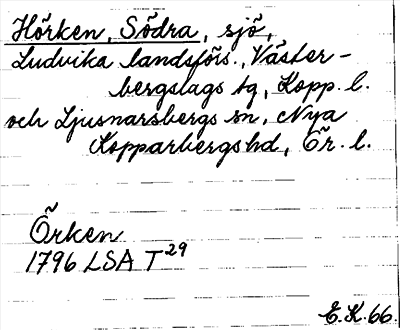 Hörken, Södra, sjö,
Ludvika landsförs., Väster-
bergslags tg, Kopp. l.
och Ljusnarsbergs sn, Nya
Kopparbergs hd, Ör. l.
Örken
1796 LSA T29
E.K. 66.